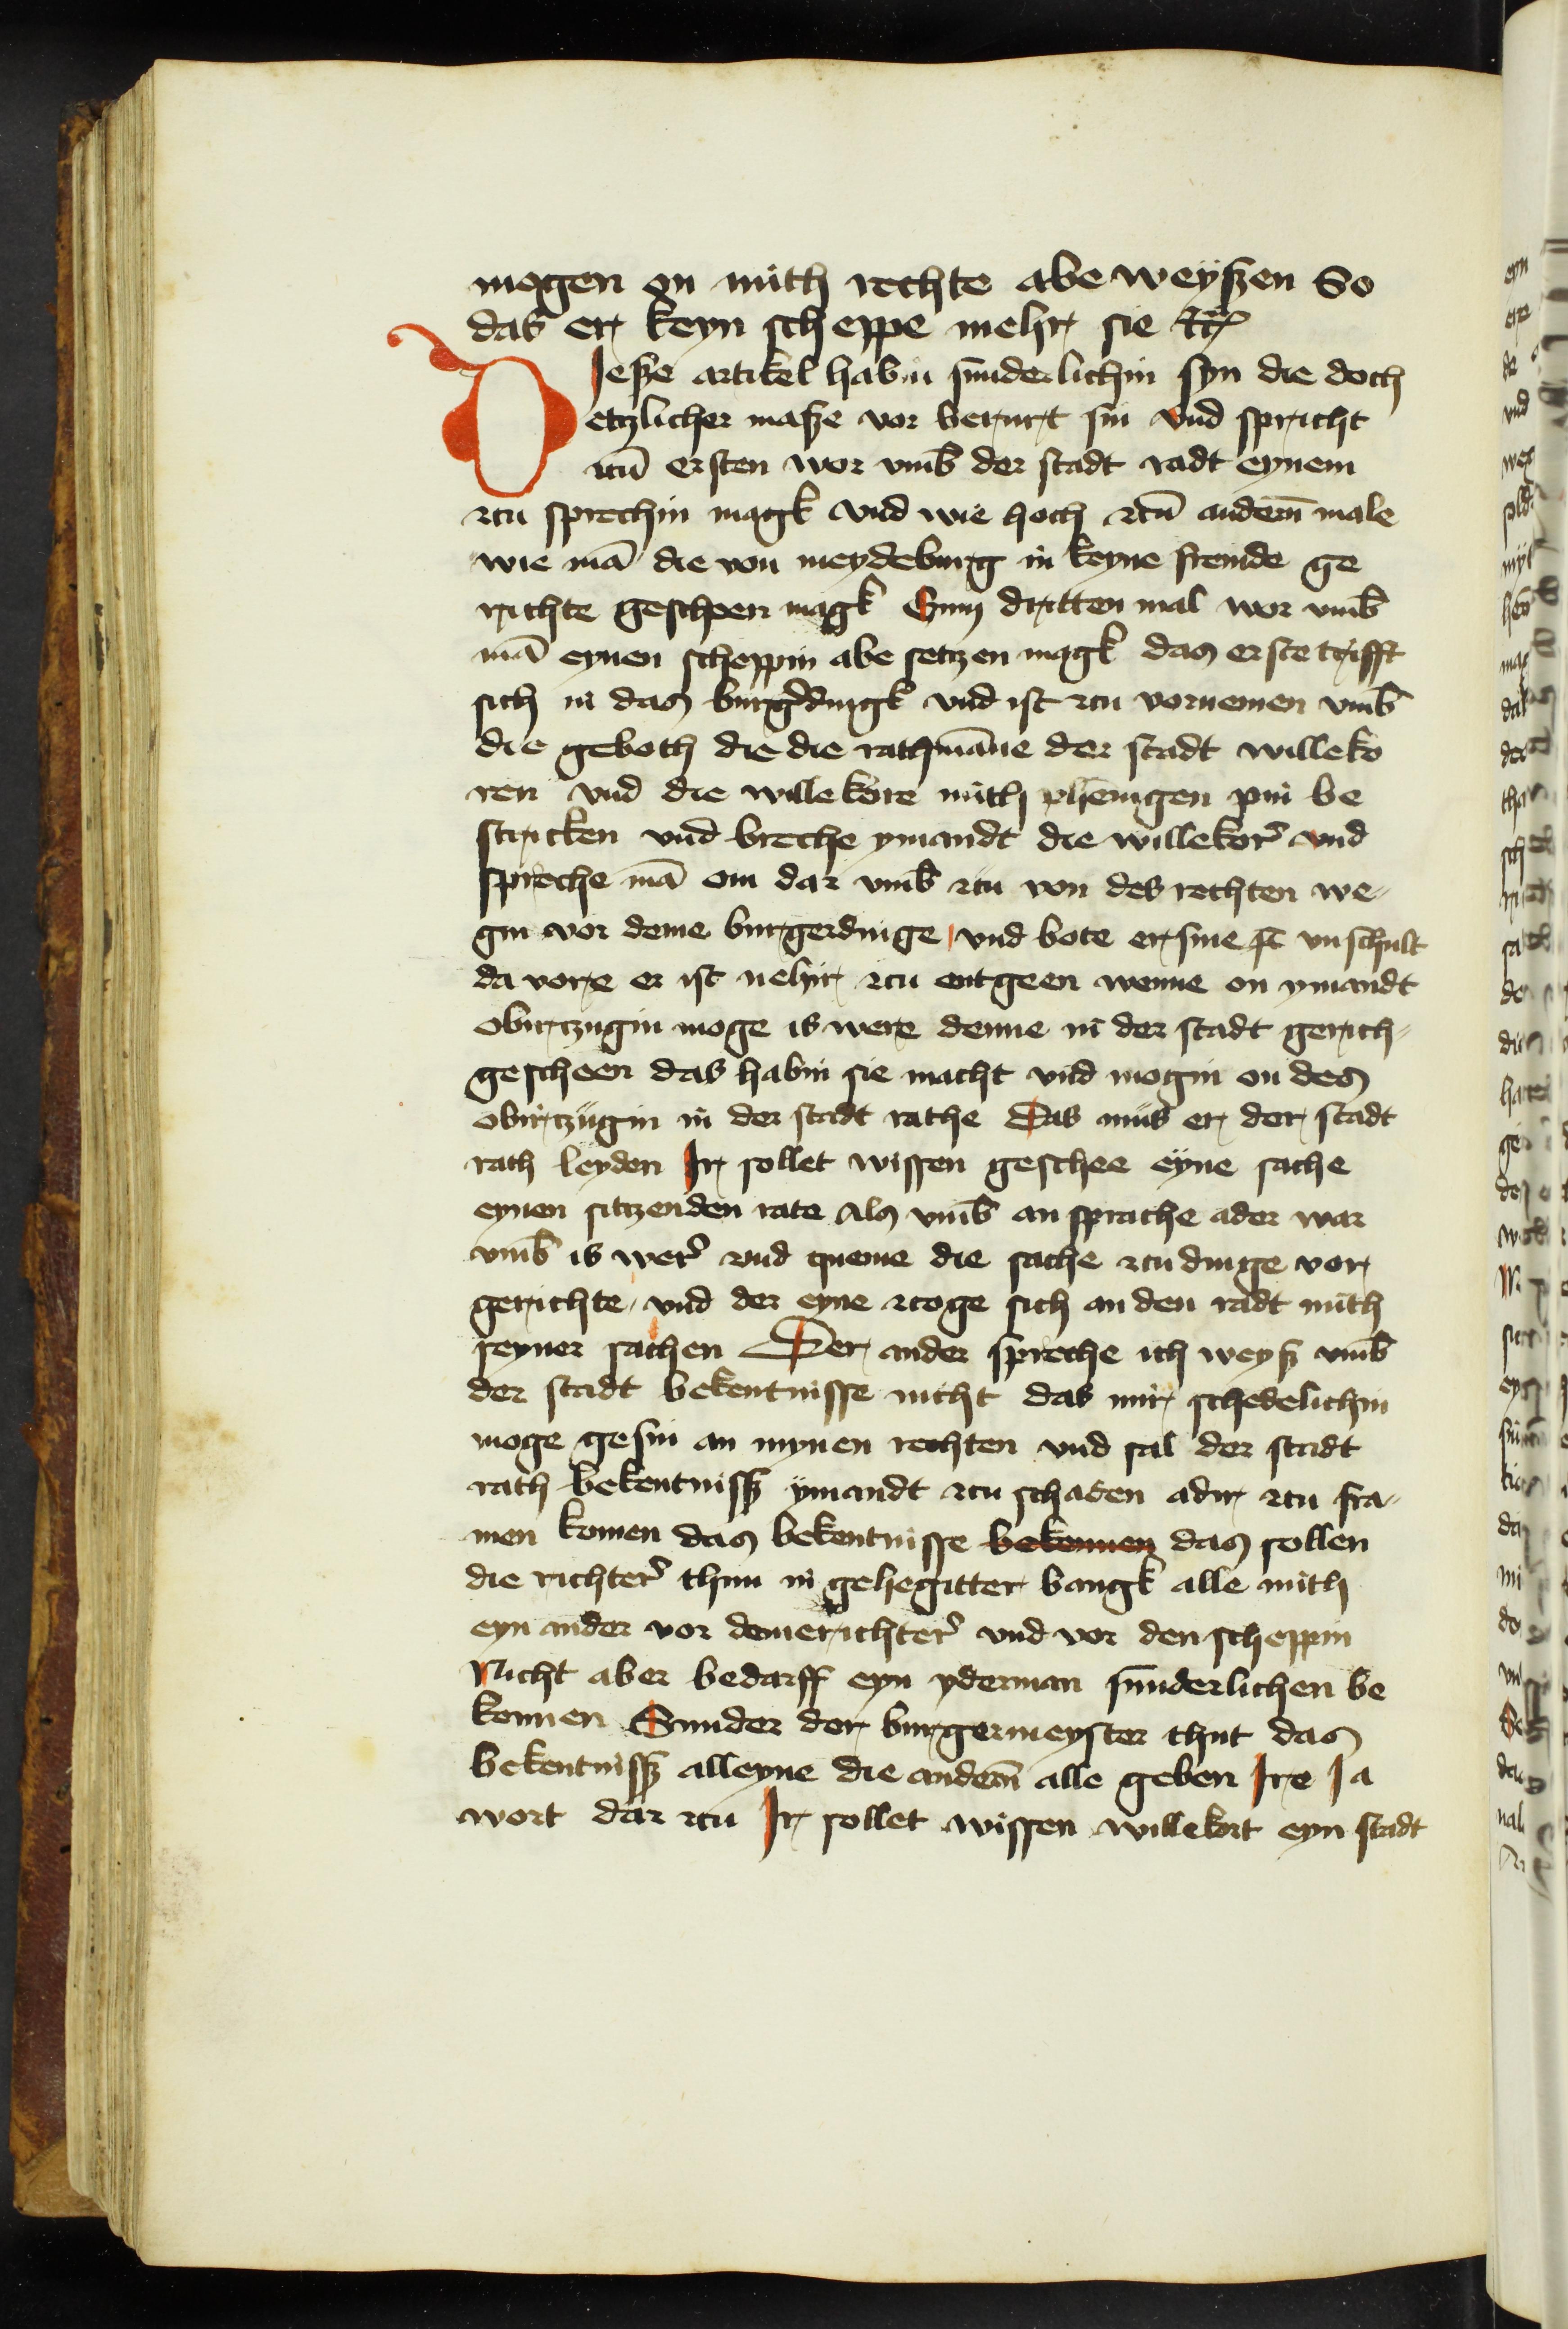 mogen on mith rechte abe weyßen So
das er keyn scheppe mehr sie Etc
DIeße artikel habin sunderlichin syn die doch
etzlicher maße vor berurt sin vnd spricht
zcū ersten wor vmb der stadt radt eynem
zcu sprechin magk vnd wie hoch zcū anderm̄ male
wie mā die von meydeburg in keyne fremde ge
richte gescheen magk Zum dritten mal wor vmb
mā eynen scheppin abe setzen magk das erste trifft
sich in das burgdingk vnd ist zcu vornemen vmb
die geboth die die rathmāne der stadt willeko
ren vnd die willekore mith phenigen pin be
stricken vnd breche ymandt die willekor vnd
spreche mā om dar vmb zcu von des rechten we-
gin vor deme burgerdinge vnd bote er sine vnschult
da vore er ist nehir zcu entgeen wenne on ymandt
obirczugin moge is were denne in der stadt gerich-
gescheen das habin sie macht vnd mogin on des
obirczugin in der stadt rathe Das mus er der stadt
rath leyden Ir sollet wissen geschee eyne sache
eynen sitczenden rate als vmb an sprache ader war
vmb is wer vnd queme die sache zcu dinge vor
gerichte vnd der eyne zcoge sich an den radt mith
seyner sachen Der ander spreche ich weyß vmb
der stadt bekentnisse nicht das mir schedelichin
moge gesin an mynen rechten vnd sal der stadt
rath bekentniß ymandt zcu schaden adir zcu fra-
men komen das bekentnisse bekennen das sollen
die richter thun in gehegitter bangk alle mith
eyn ander vor deme richter vnd vor den scheppin
Nicht aber bedarff eyn yderman sunderlichen be
kennen Sunder der burgermeyster thut das
bekentniß alleyne die anderm̄ alle geben Ire Ja
wort dar zcu Ir sollet wissen willekort eyn stadt